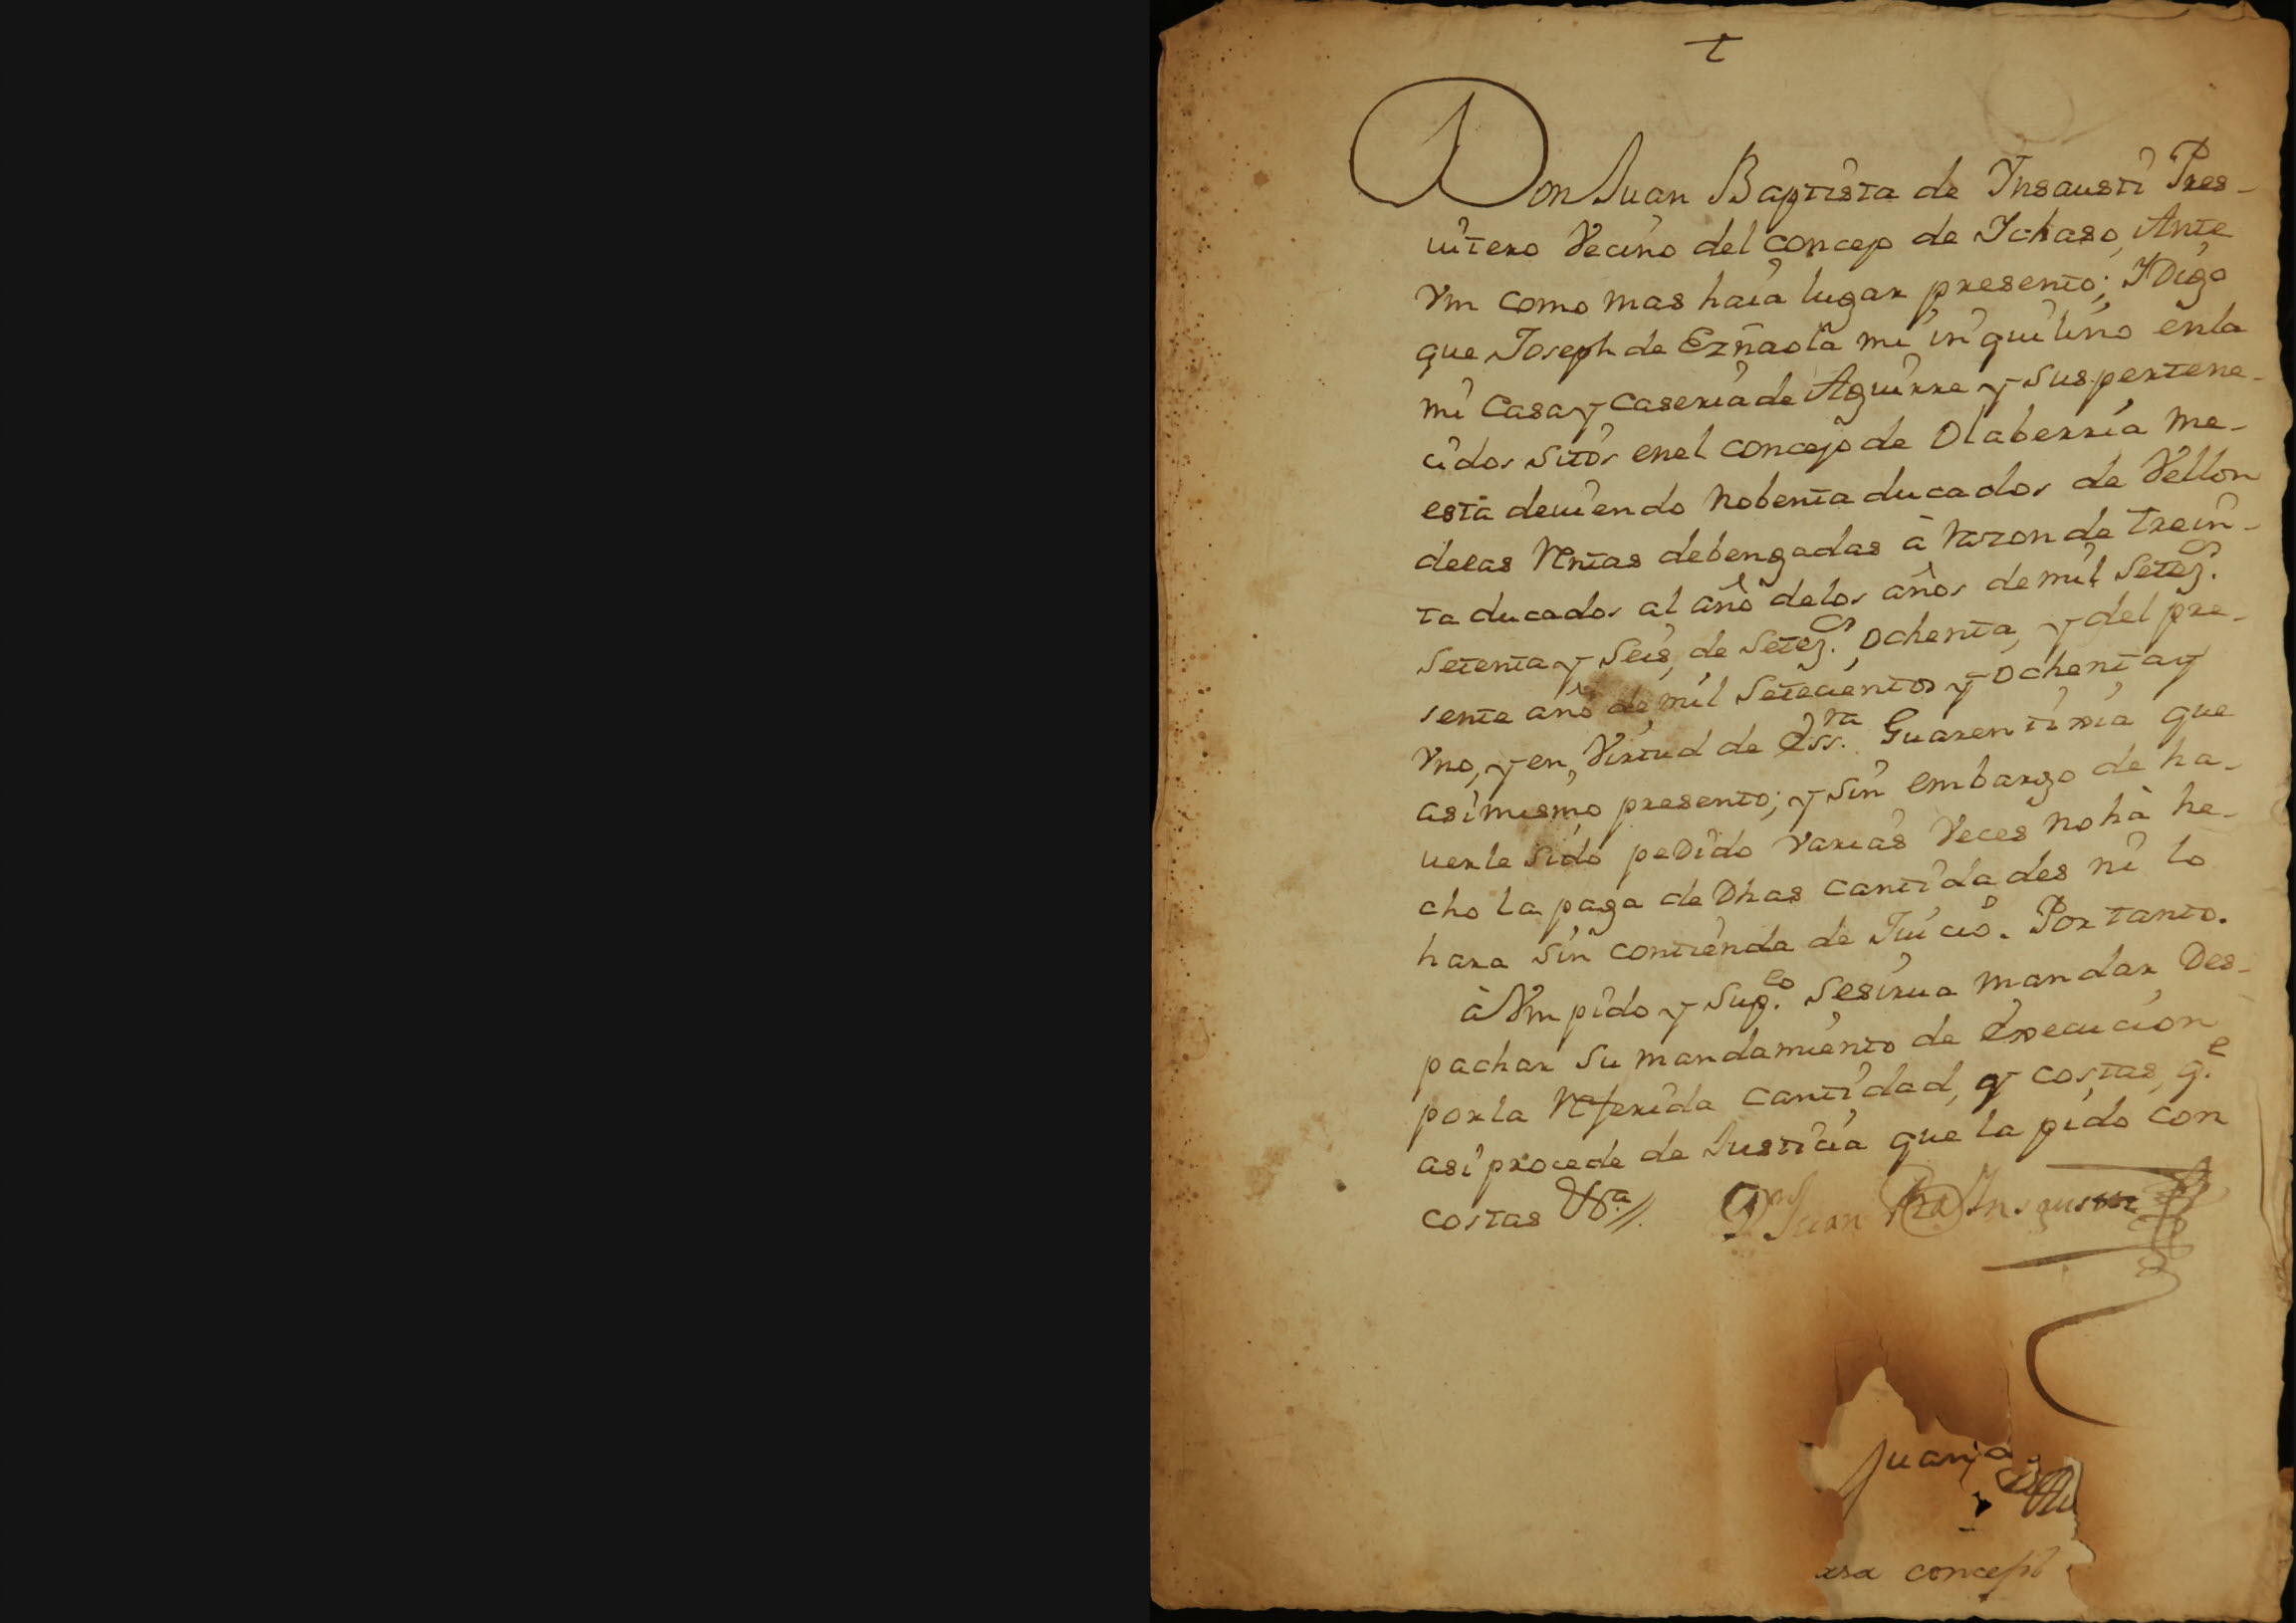 t
Don Juan Baptista de Ynsausti Pres-
uitero Vecino del concejo de Ichaso, Ante
Vm como mas haia lugar presento; Y Digo
que Joseph de Ezñaola mi inquilino en la
mi Casa y Caseria de Aguirre y sus pertene-
cidos sitos en el concejo de Olaberria me
está deuiendo nobenta ducados de Vellon
de las Rentas debengadas à razon de trein-
ta ducados al año de los años de mil Setez.os
Setenta y Seis, de Setez.os ochenta, y del pre-
sente año de mil Setecientos y ochenta y
Vno, y en Virtud de Ess.ra Guarentixia que
asi mismo presento; y sin embargo de ha-
uerle sido peDido varias Veces no hà he-
cho la paga de Dhas cantidades ni lo
hara sin contienda de Juicio. Por tanto.
à Vm pido y sup.co se sirua mandar Des-
pachar su mandamiento de Execucion
por la Referida cantidad, y costas, q.e
asi procede de Justicia que la pido con
costas &.a//. D.n Juan Bta Insausti
Juan
concep